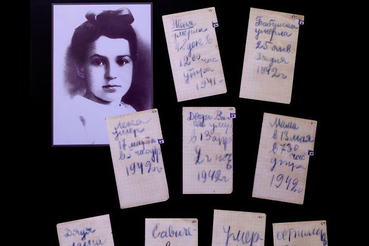 Женя
умерла
28 дек в
12 00 час
утра
1941 г
Бабушка
умерла
25 янв
3 ч дня
1942 г
Лека
умер
17 марта
в 5 час у
1942 г
Дядя Ва
ся умер
в 13 апр
2 ч ночь
1942 г
Мама
в 13 мая
в 7 30
час
утра
1942 г
Дядя
Савиче
умер